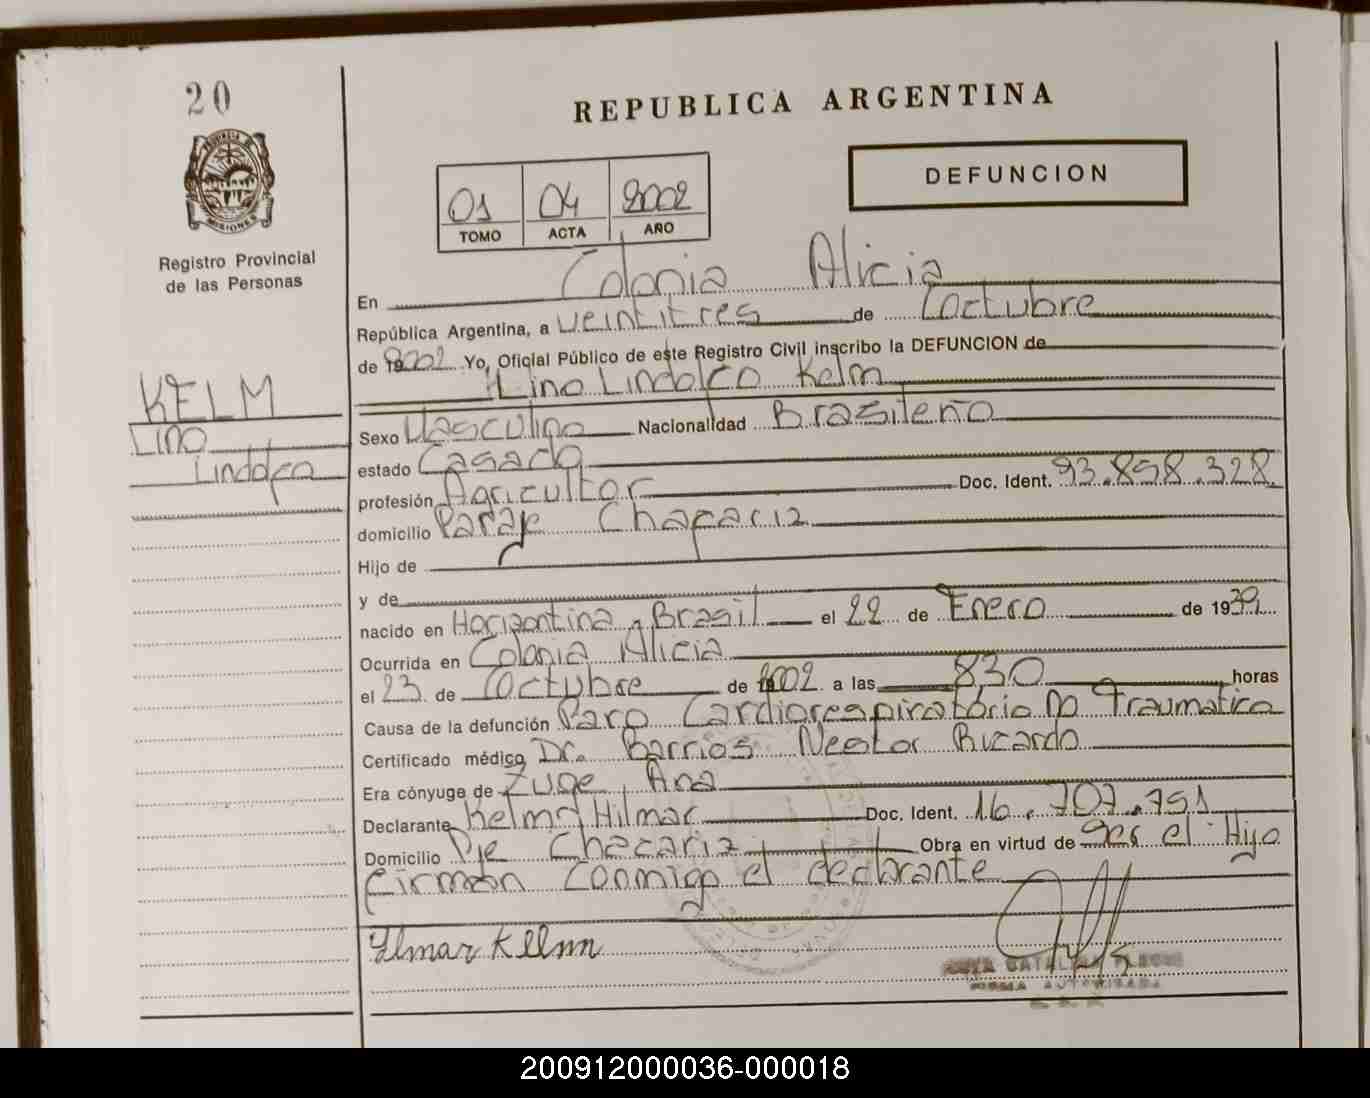 20
REPUBLICA ARGENTINA
DEFUNCION
01 04 2002
TOMO ACTA AÑO
PROVINCIA DE MISIONES
Registro Provincial
de las Personas
En Colonia Alicia
República Argentina, a veintitres de Octubre
de 2002 Yo, Oficial Público de este Registro Civil inscribo la DEFUNCION de
Lino Lindolfo Kelm
KELM
Lino
Lindolfo
Sexo Masculino Nacionalidad Brasileño
estado Casado
profesión Agricultor Doc. Ident. 93.858.328
domicilio Paraje Chafariz
Hijo de
y de
nacido en Horizontina - Brasil el 22 de Enero de 1939
Ocurrida en Colonia Alicia
el 23 de Octubre de 2002 a las 830 horas
Causa de la defunción Paro Cardiorespiratório no Traumatico
Certificado médico Dr. Barrios Nestor Ricardo
Era cónyuge de Zuge Ana
Declarante Kelm Hilmar Doc. Ident. 16.707.751
Domicilio Pje Chafariz Obra en virtud de ser el Hijo
firman conmigo el declarante
Ilmar Kelm
FIRMA AUTORIZADA
200912000036-000018